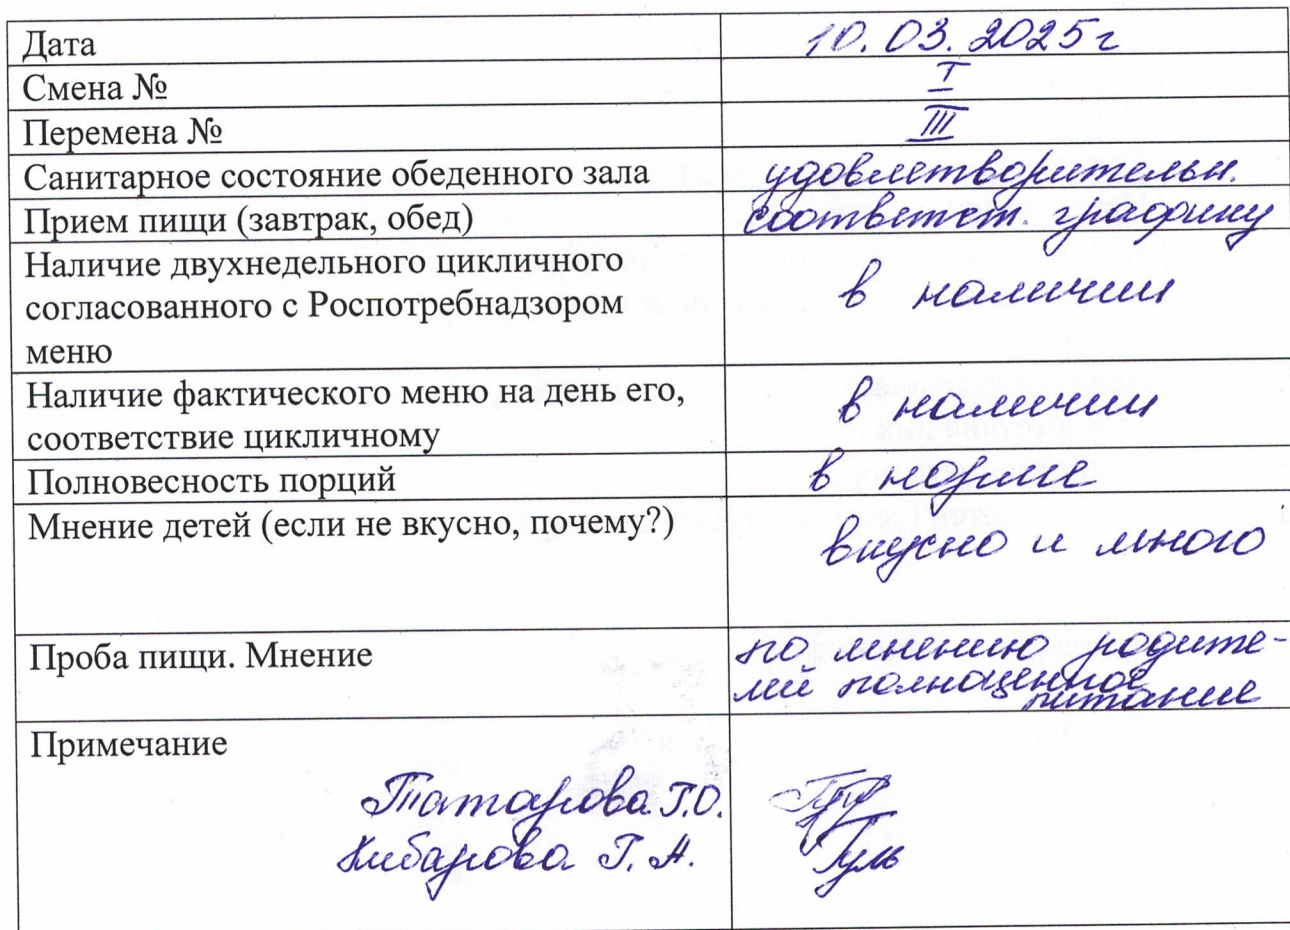 Дата 10.03.2025г
Смена № I
Перемена № III
Санитарное состояние обеденного зала удовлетворительн.
Прием пищи (завтрак, обед) соответст. графику
Наличие двухнедельного цикличного
согласованного с Роспотребнадзором
меню
в наличии
Наличие фактического меню на день его,
соответствие цикличному
в наличии
Полновесность порций в норме
Мнение детей (если не вкусно, почему?)
вкусно и много
Проба пищи. Мнение
по мнению родите-
лей полноценное
питание
Примечание
Татарова Г.О.
Кибарова Г.А.
Гуль